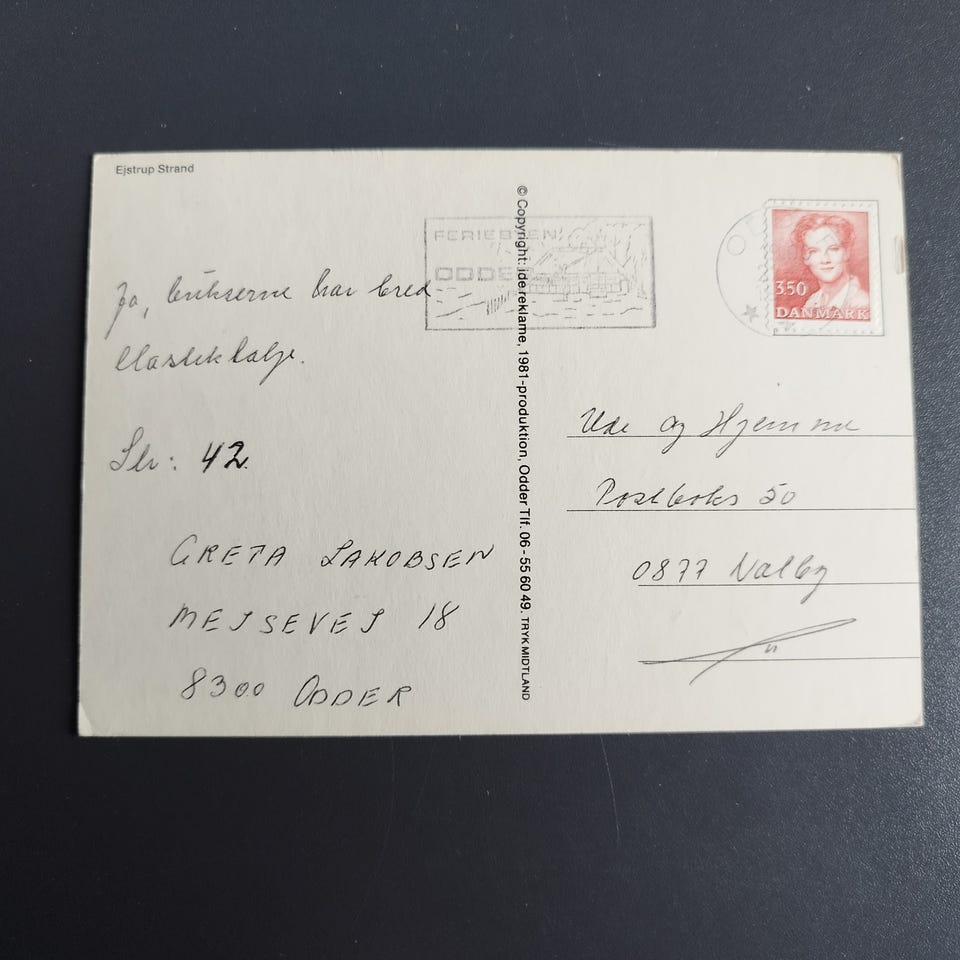 Ejstrup Strand
FERIEBYEN
ODDER
© Copyright: ide reklame, 1981-produktion, Odder Tlf. 06 - 55 60 49. TRYK MIDTLAND
3.50
DANMARK
Ja, bukserne har bred
elastiktalje.
Str: 42.
GRETA JAKOBSEN
MEJSEVEJ 18
8300 ODDER
Ude og Hjemme
Postboks 50
0877 Valby